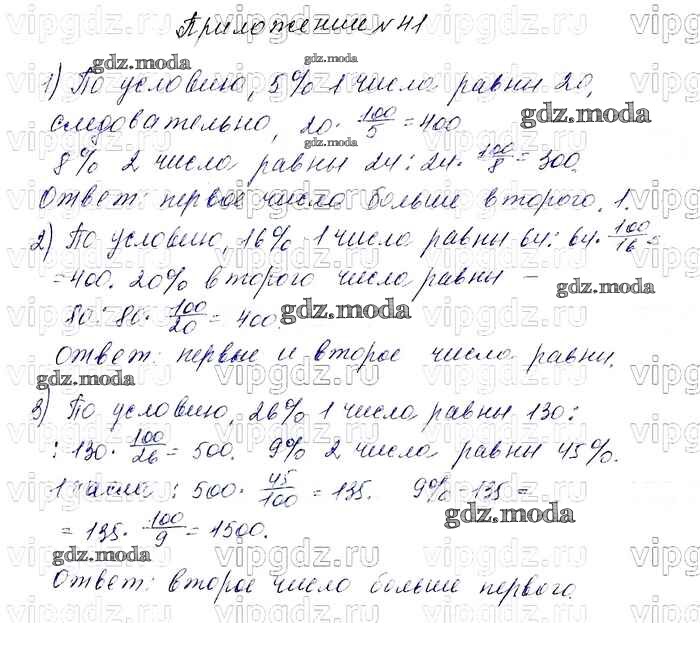 Приложение № 41
1) По условию, 5% 1 числа равны 20,
следовательно, 20 · 100/5 = 400
8% 2 числа равны 24: 24 · 100/8 = 300.
Ответ: первое число больше второго. 1.
2) По условию, 16% 1 числа равны 64: 64 · 100/16 =
= 400. 20% второго числа равны –
80: 80 · 100/20 = 400.
Ответ: первые и второе числа равны.
3) По условию, 26% 1 числа равны 130:
: 130 · 100/26 = 500. 9% 2 числа равны 45%.
1 числа: 500 · 45/100 = 135. 9% – 135 =
= 135 · 100/9 = 1500.
Ответ: второе число больше первого.
gdz.moda
vipgdz.ru